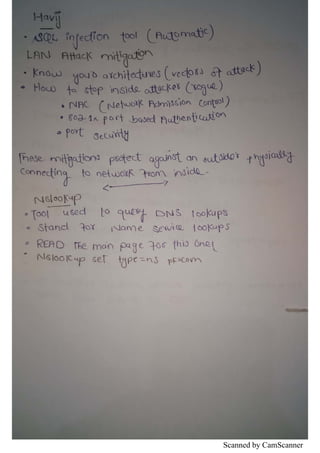 Havij
• SQL injection tool (Automatic)
LAN Attack mitigation
• Know your architectures (vectors of attack)
• How to stop inside attacker (rogue)
• NAC (Network Admission control)
• 802.1x port based Authentication
• port security
These mitigations protect against an outsider physically
connecting to network from inside.
NSlookup
• Tool used to query DNS lookups
• stand for Name service lookups
• READ The man page for this one!
• NSlookup set type=ns
Scanned by CamScanner